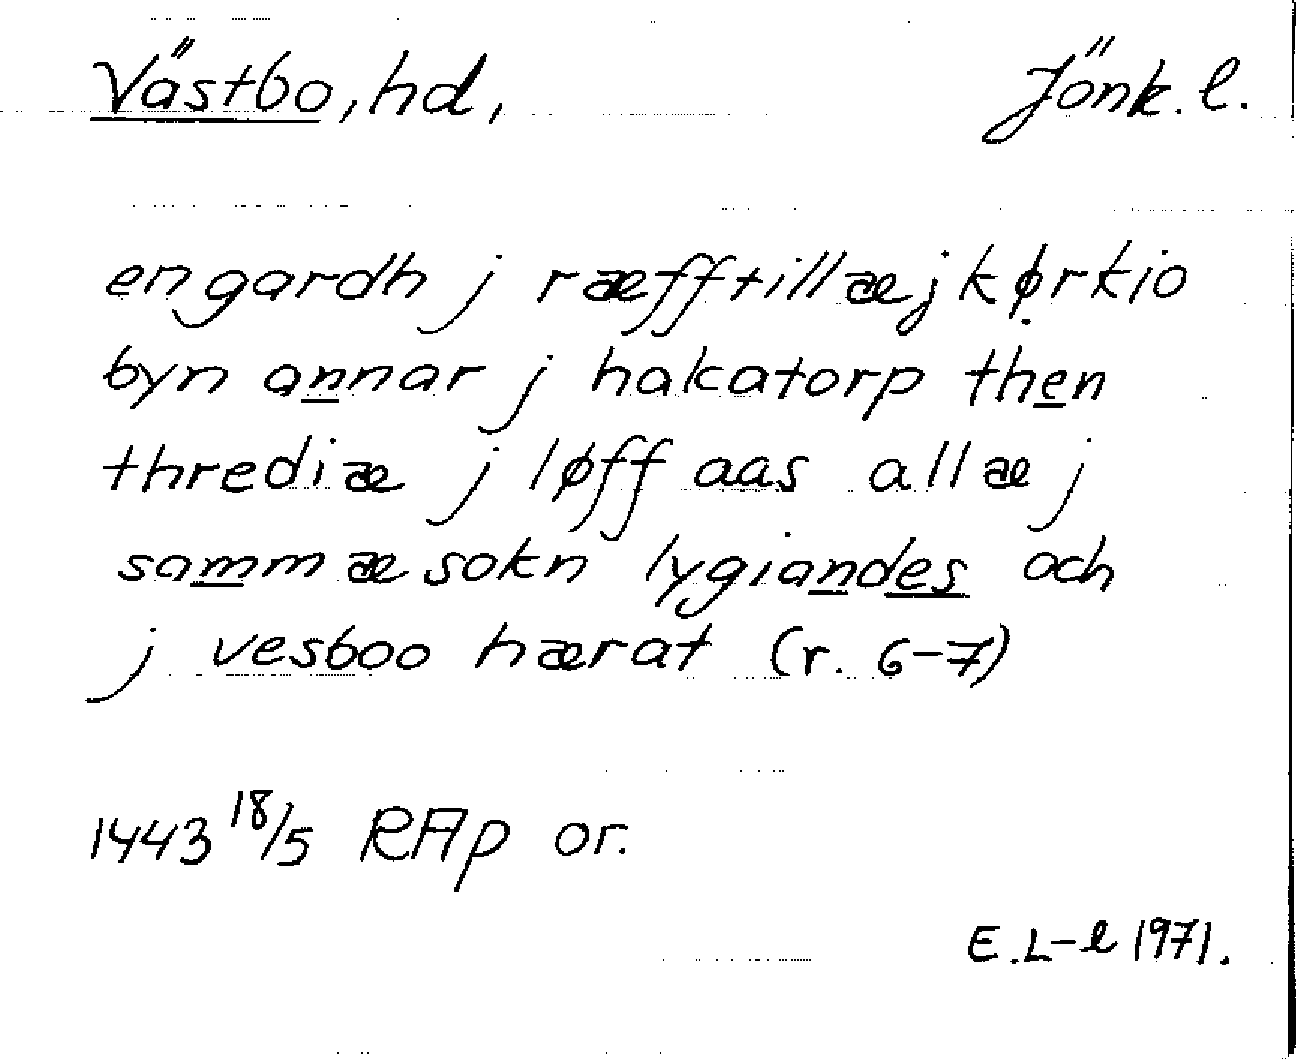 Västbo, hd, Jönk. l.
en gardh j ræfftillæ j kørkio
byn annar j hakatorp then
thrediæ j løff aas allæ j
sammæ sokn lygiandes och
j vesboo hærat (r. 6-7)
1443 18/5 RAp or.
E.L-l 1971.